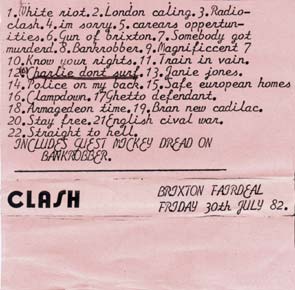 1.White riot.2.London caling.3.Radio-
clash.4.im sorry.5.carears oppertun-
ities.6.Gun of brixton.7.Somebody got
murderd.8.Bankrobber.9.Magnificcent 7
10.Know your rights.11.Train in vain.
12.Charlie dont surf.13.Janie jones.
14.Police on my back.15.Safe european homes
16.Clampdown.17Ghetto defendant.
18.Armagedeon time.19.Bran new cadilac.
20.Stay free.21English cival war.
22.Straight to hell.
INCLUDES GUEST MICKEY DREAD ON
BANKROBBER.
CLASH
BRIXTON FAIRDEAL
FRIDAY 30th JULY 82.